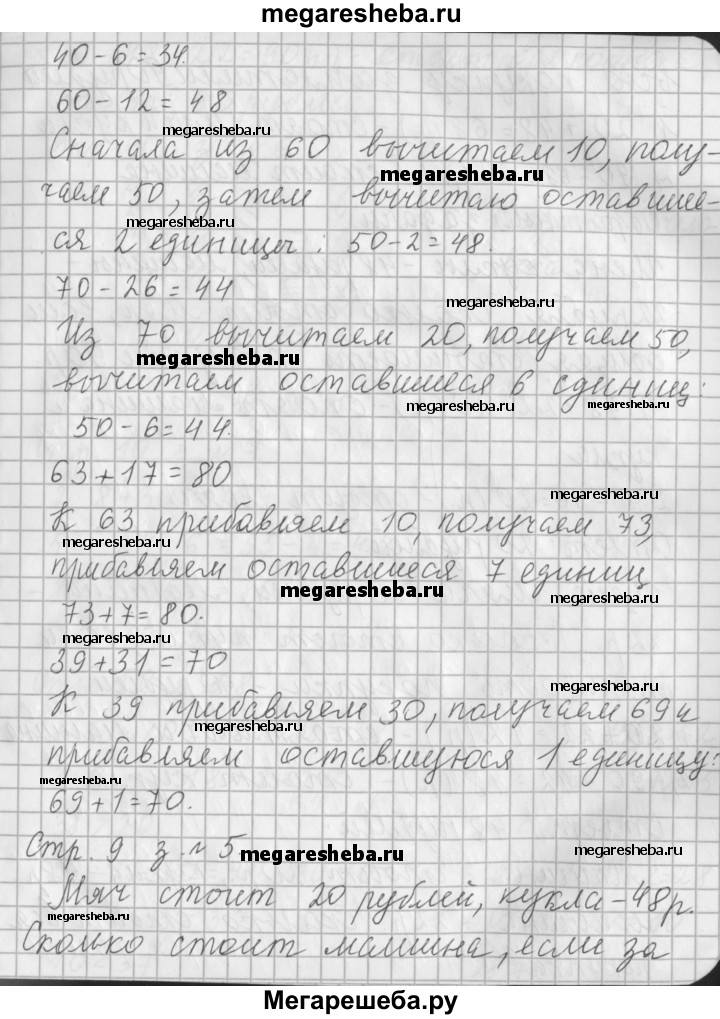 megaresheba.ru
40-6=34.
60-12=48
megaresheba.ru
Сначала из 60 вычитаем 10, полу-
megaresheba.ru
чаем 50, затем вычитаю оставшие-
megaresheba.ru
ся 2 единицы: 50-2=48.
70-26=44
megaresheba.ru
Из 70 вычитаем 20, получаем 50,
megaresheba.ru
вычитаем оставшиеся 6 единиц:
megaresheba.ru megaresheba.ru
50-6=44.
63+17=80
megaresheba.ru
К 63 прибавляем 10, получаем 73,
megaresheba.ru
прибавляем оставшиеся 7 единиц
megaresheba.ru megaresheba.ru
73+7=80.
megaresheba.ru
39+31=70
megaresheba.ru
К 39 прибавляем 30, получаем 69 и
megaresheba.ru
прибавляем оставшуюся 1 единицу:
megaresheba.ru
69+1=70.
Стр. 9 з. № 5
megaresheba.ru megaresheba.ru
Мяч стоит 20 рублей, кукла-48р.
megaresheba.ru
Сколько стоит машина, если за
Мегарешеба.ру